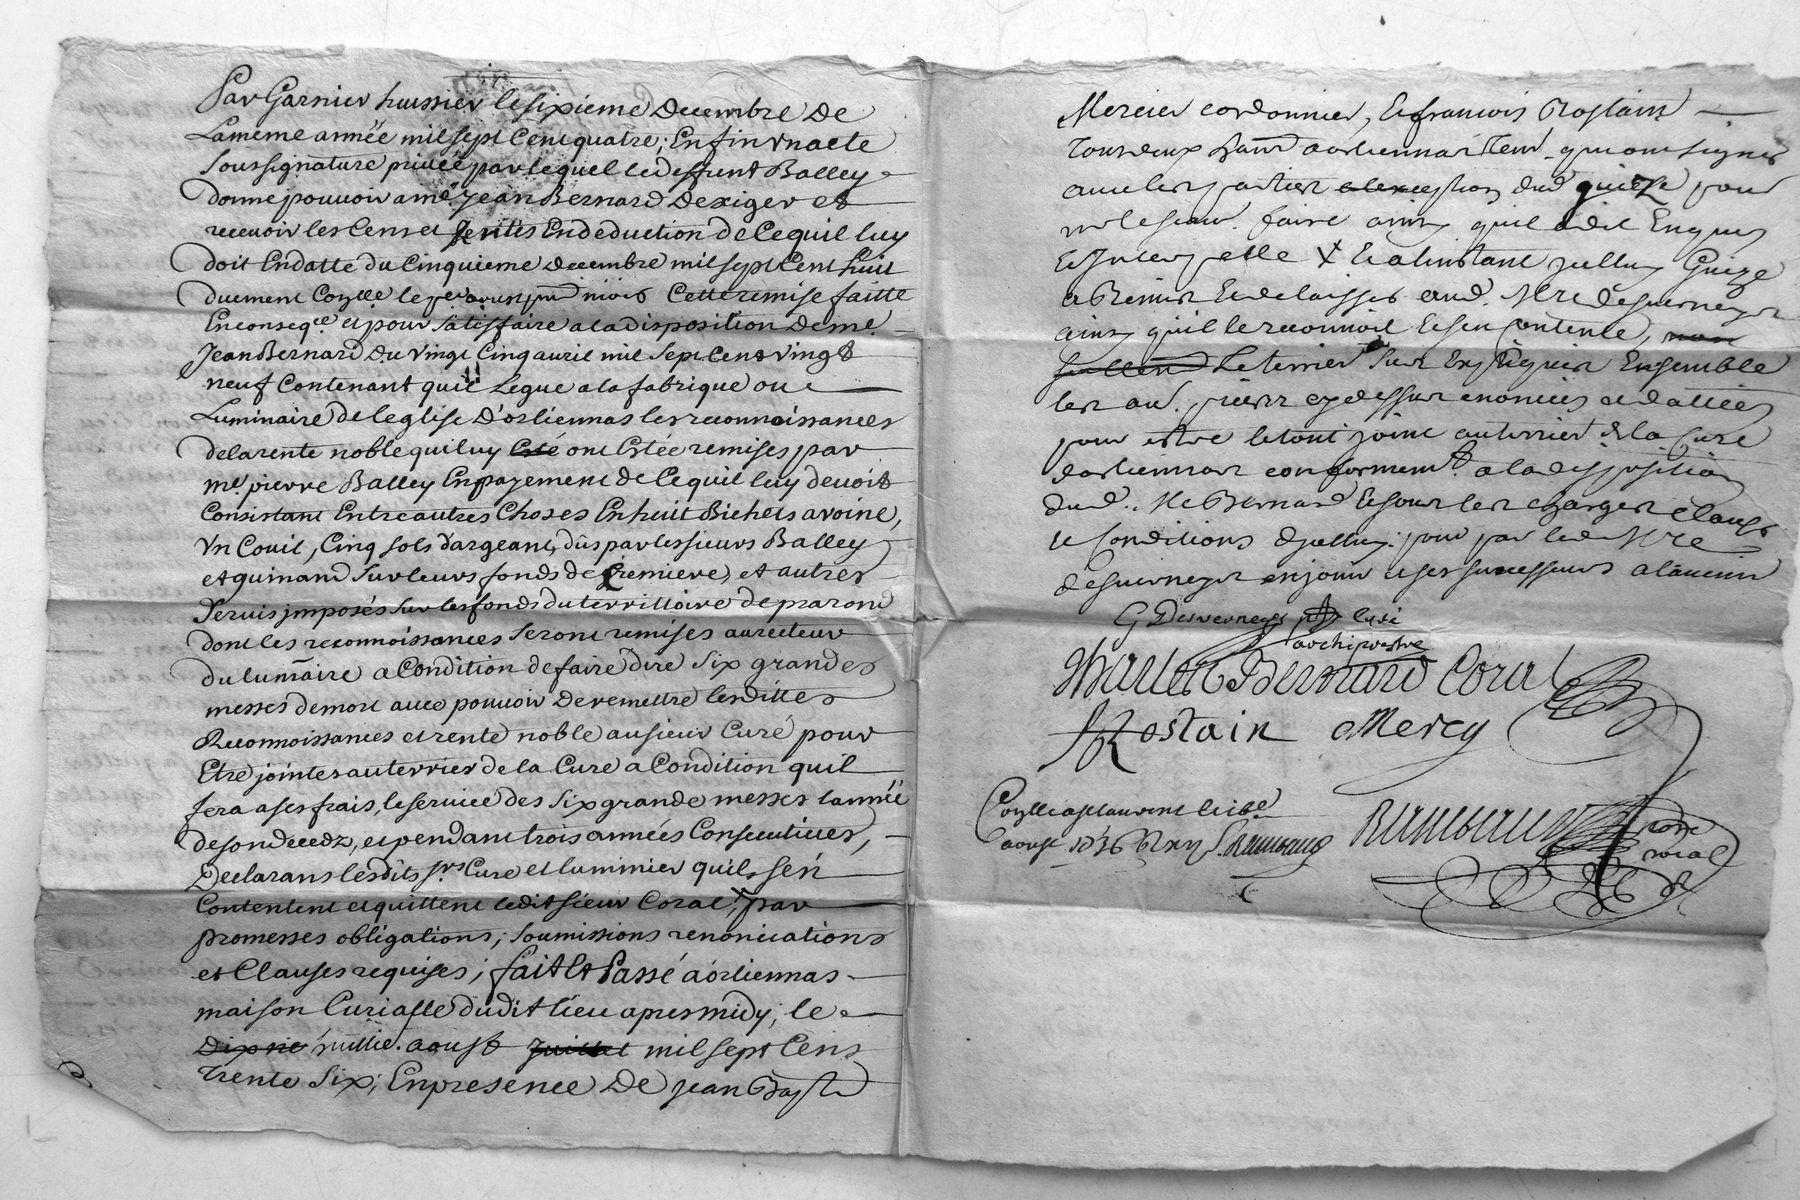 Par Garnier huissier le sixieme Decembre De
La meme année mil sept Cent quatre; Enfin vn acte
sous signature privée par lequel le deffunt Balley
donne pouvoir a me. Jean Bernard Dexiger et
recevoir les Cens et Rentes En deduction de Ce quil luy
doit En datte du Cinquieme decembre mil sept Cent huit
duement Corlle le Cette remise faitte
En conseqce et pour sattisfaire a la disposition de me.
Jean Bernard du vingt Cinq avril mil sept Cent vingt
neuf Contenant quil Legue a la fabrique ou
Luminaire de leglise D'orliennas les reconnoissances
de la rente noble qui luy esté ont Estée remises par
me. pierre Balley En payement de Ce quil luy devoit
Consistant Entre autres Choses En huit Bichets avoine,
Vn Couil, Cinq sols dargeant, dûs par les sieurs Balley
et guinand sur leurs fonds de Cremiere, et autres
servis jmposés sur les fonds du territtoire de marond
dont les reconnoissances seront remises au recteur
du lumre a Condition de faire dire six grandes
messes de mort avec pouvoir de remettre lesdittes
Reconnoissances et rente noble au sieur Curé pour
Etre jointes au terrier de la Cure a Condition quil
fera a ses frais, le service des six grande messes lannée
de son decedz, et pendant trois années Consecutives,
Declarans lesdits srs Cure et luminier quils sen
Contentent et quittent ledit sieur Coral, par
promesses obligations, soumissions renonciations
et Clauses requises; fait et Passé a orliennas
maison Curialle dudit lieu apres midy, le
Dix huittie. aoust Juillet mil sept Cens
Trente six; En presence De jean Bapte
Mercier cordonnier, et francois Rostain
Tous deux d'orliennas tem. qui ont signés
avec les parties a lexception dud guieze pour
ne le scavr. faire ainsy quil a dit Enquis
et Interpelle X Et a linstant jcelluy Guieze
a Remis et delaisser aud. Mre desverneys
ainsy quil le reconnoit et sen Contente,
Le terrier sus Expliquer Ensemble
les au. pieces cy dessus enoncées et dattées
pour estre le tout joint au terrier de la Cure
dorliennas conformemt. a la disposition
dud. Me Bernard et sous les charges Clauses
et Conditions djcelluy. pour par ledit Mre
desverneys en jouir et ses successeurs a lavenir
G Desverneys Curé
archiprestre
Bernard Coral
Rostain Mercy
Corlle a st laurent le
aoust 1736
royal